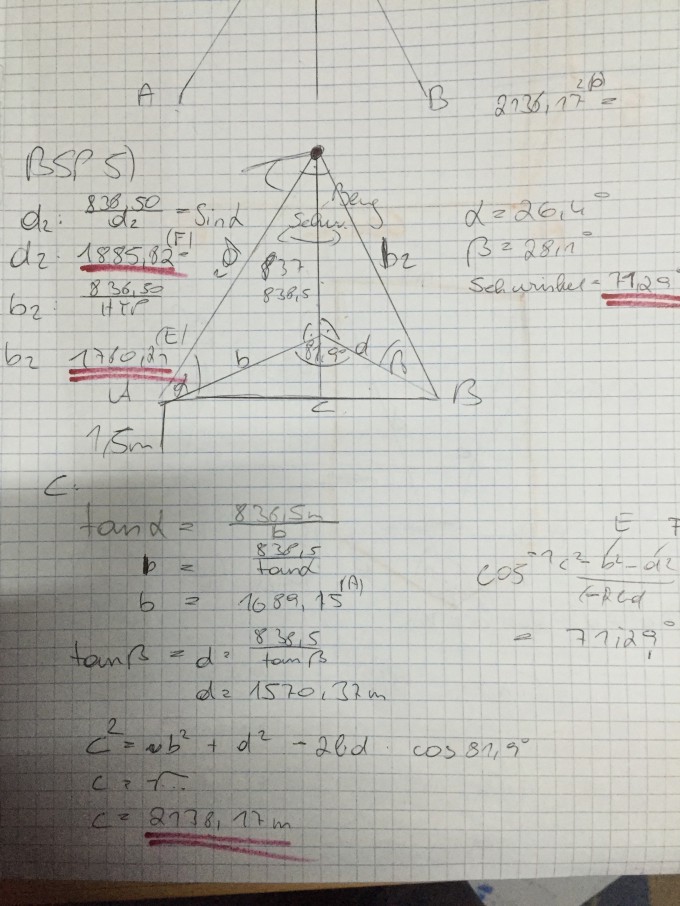 A
B
2136,17 =
BSP 5)
d2: 838,50 / d2 = Sin α
d2: 1885,82 (F)
b2: 836,50 / HYP
b2 1760,27 (E)
Berg
Schw.
837
838,5
b2
α = 26,4°
β = 28,1°
Schwinkel = 71,29°
b
81,9°
d
β
α
A
C
B
1,5m
C:
tan α = 836,5m / b
b = 838,5 / tan α
b = 1689,15 (A)
tan β = d = 838,5 / tan β
d = 1570,37 m
E
7
cos⁻¹ c² - b² - d² / (-2bd
= 71,29°
c² = b² + d² - 2bd · cos 81,9°
c = √...
c = 2138,17 m